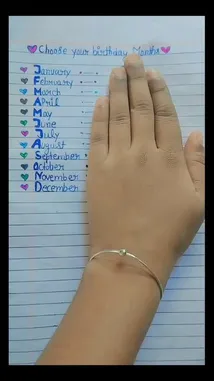 Choose your birthday Months
January
February
March
April
May
June
July
August
September
October
November
December